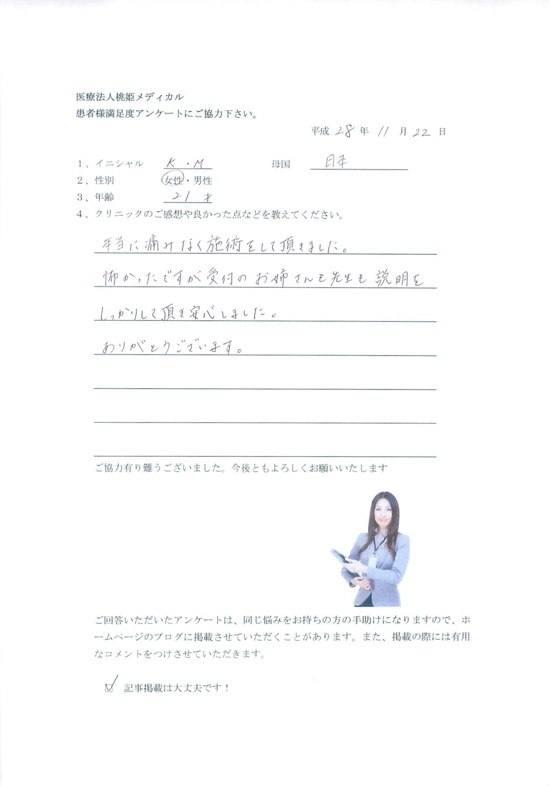 医療法人桃姫メディカル
患者様満足度アンケートにご協力下さい。
平成 28 年 11 月 22 日
1、イニシャル K・M 母国 日本
2、性別 女性・男性
3、年齢 21 才
4、クリニックのご感想や良かった点などを教えてください。
本当に痛みなく施術をして頂きました。
怖かったですが受付のお姉さんも先生も説明を
しっかりして頂き安心しました。
ありがとうございます。
ご協力有り難うございました。今後ともよろしくお願いいたします
ご回答いただいたアンケートは、同じ悩みをお持ちの方の手助けになりますので、ホ
ームページのブログに掲載させていただくことがあります。また、掲載の際には有用
なコメントをつけさせていただきます。
☑ 記事掲載は大丈夫です！